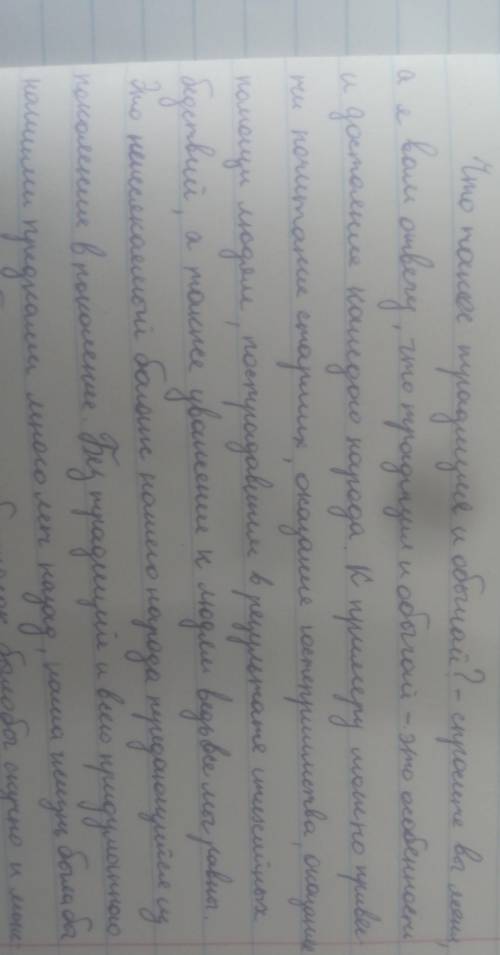 Что такое традиция и обычай? - спросите вы меня,
а я вам отвечу, что традиция и обычай - это особенност
и достояние каждого народа. К примеру можно приве
ти почитание старших, оказание гостеприимства, оказание
помощи людям, пострадавшим в результате стихийных
бедствий, а также уважение к людям ведь все мы равны.
Это неиссякаемый баланс нашего народа передающийся из
поколение в поколение. Без традиций и всего придуманного
нашими предками много лет назад, наша жизнь была ба
было бы скучно и